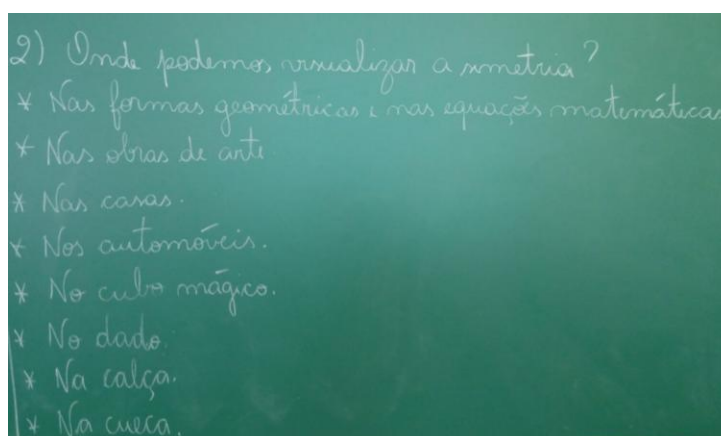 2) Onde podemos visualizar a simetria?
* Nas formas geométricas e nas equações matemáticas
* Nas obras de arte.
* Nas casas.
* Nos automóveis.
* No cubo mágico.
* No dado.
* Na calça.
* Na cueca.